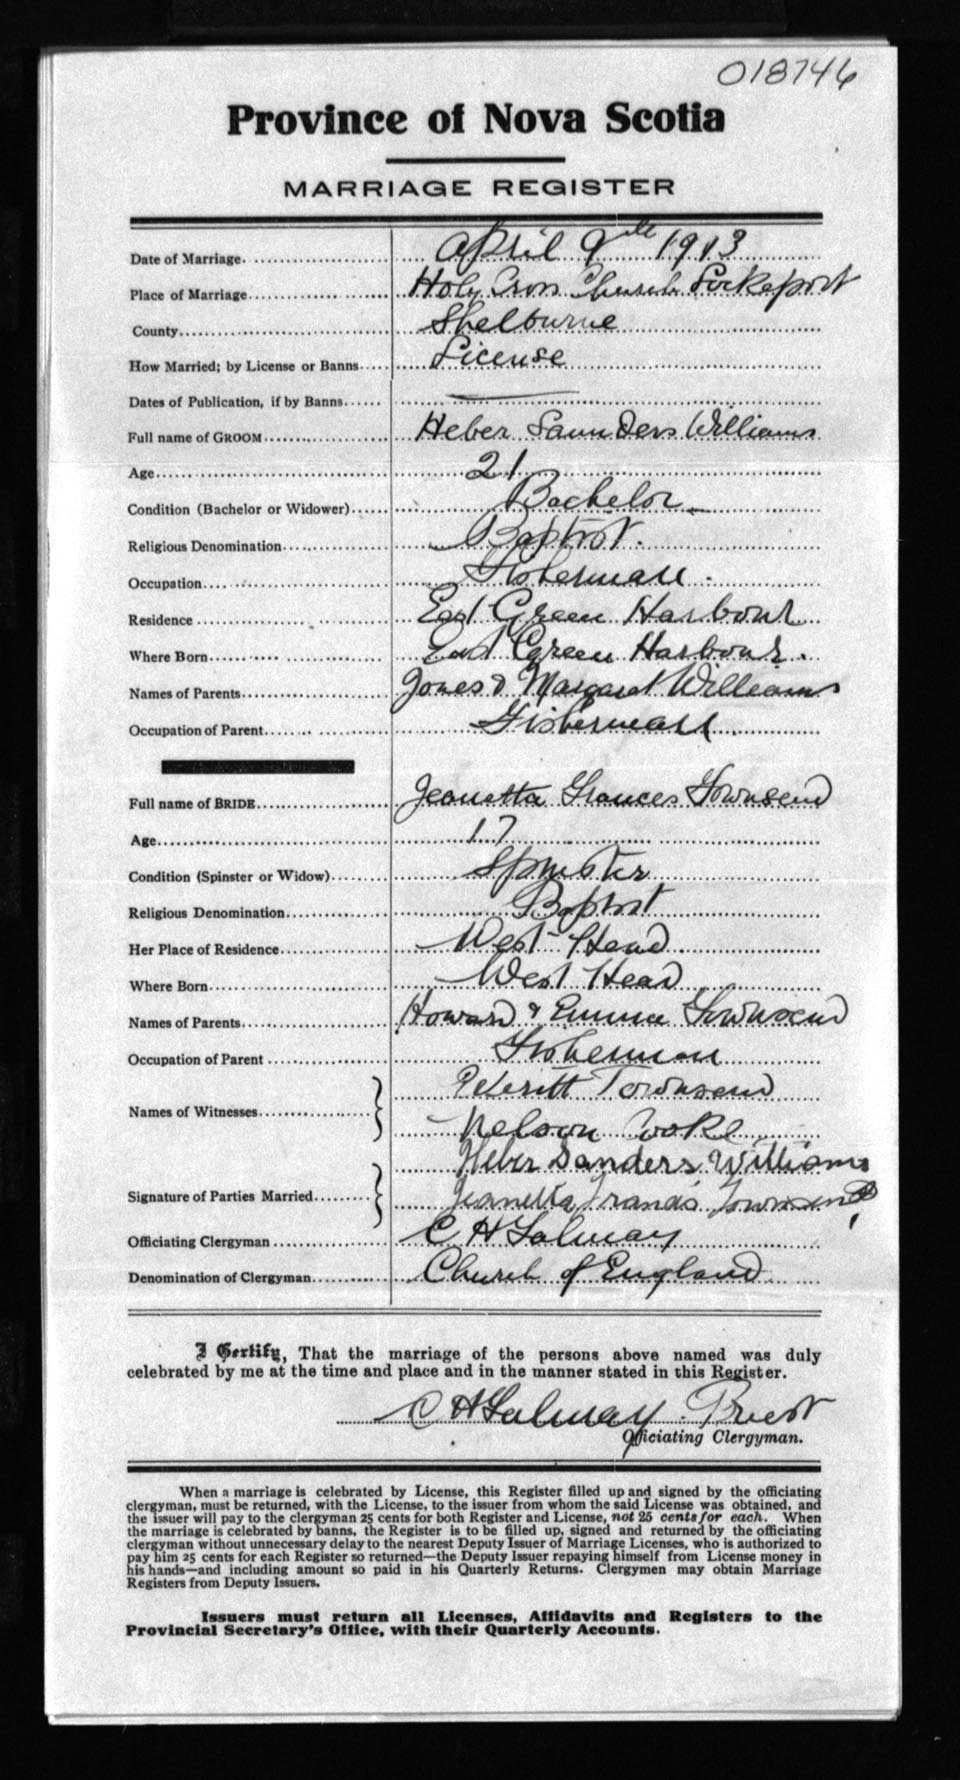 018746
Province of Nova Scotia
MARRIAGE REGISTER
Date of Marriage April 9th 1913
Place of Marriage Holy Cross Church Lockeport
County Shelburne
How Married; by License or Banns License
Dates of Publication, if by Banns
Full name of GROOM Heber Saunders Williams
Age 21
Condition (Bachelor or Widower) Bachelor
Religious Denomination Baptist.
Occupation Fisherman.
Residence East Green Harbour
Where Born East Green Harbour.
Names of Parents & Margaret Williams
Occupation of Parent Fisherman
Full name of BRIDE Jeanetta Frances Townsend
Age 17
Condition (Spinster or Widow) Spinster
Religious Denomination Baptist
Her Place of Residence West Head
Where Born West Head
Names of Parents Howard & Emma Townsend
Occupation of Parent Fisherman
Townsend
Names of Witnesses
Nelson Cooke
Heber Sanders Williams
Signature of Parties Married
Jeanetta Francis Townsend
Officiating Clergyman C H
Denomination of Clergyman Church of England
I Certify, That the marriage of the persons above named was duly
celebrated by me at the time and place and in the manner stated in this Register.
C H Priest
Officiating Clergyman.
When a marriage is celebrated by License, this Register filled up and signed by the officiating
clergyman, must be returned, with the License, to the issuer from whom the said License was obtained, and
the issuer will pay to the clergyman 25 cents for both Register and License, not 25 cents for each. When
the marriage is celebrated by banns, the Register is to be filled up, signed and returned by the officiating
clergyman without unnecessary delay to the nearest Deputy Issuer of Marriage Licenses, who is authorized to
pay him 25 cents for each Register so returned—the Deputy Issuer repaying himself from License money in
his hands—and including amount so paid in his Quarterly Returns. Clergymen may obtain Marriage
Registers from Deputy Issuers.
Issuers must return all Licenses, Affidavits and Registers to the
Provincial Secretary's Office, with their Quarterly Accounts.